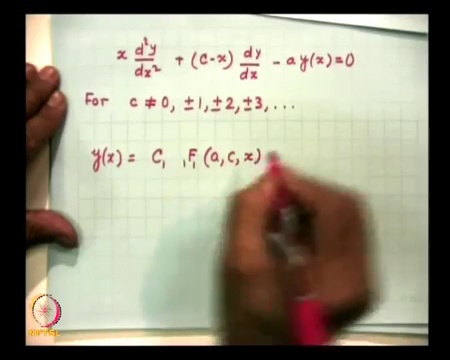 x d²y/dx² + (c-x) dy/dx - a y(x) = 0
For c ≠ 0, ±1, ±2, ±3, ...
y(x) = C₁ ₁F₁ (a, c, x)
NPTEL